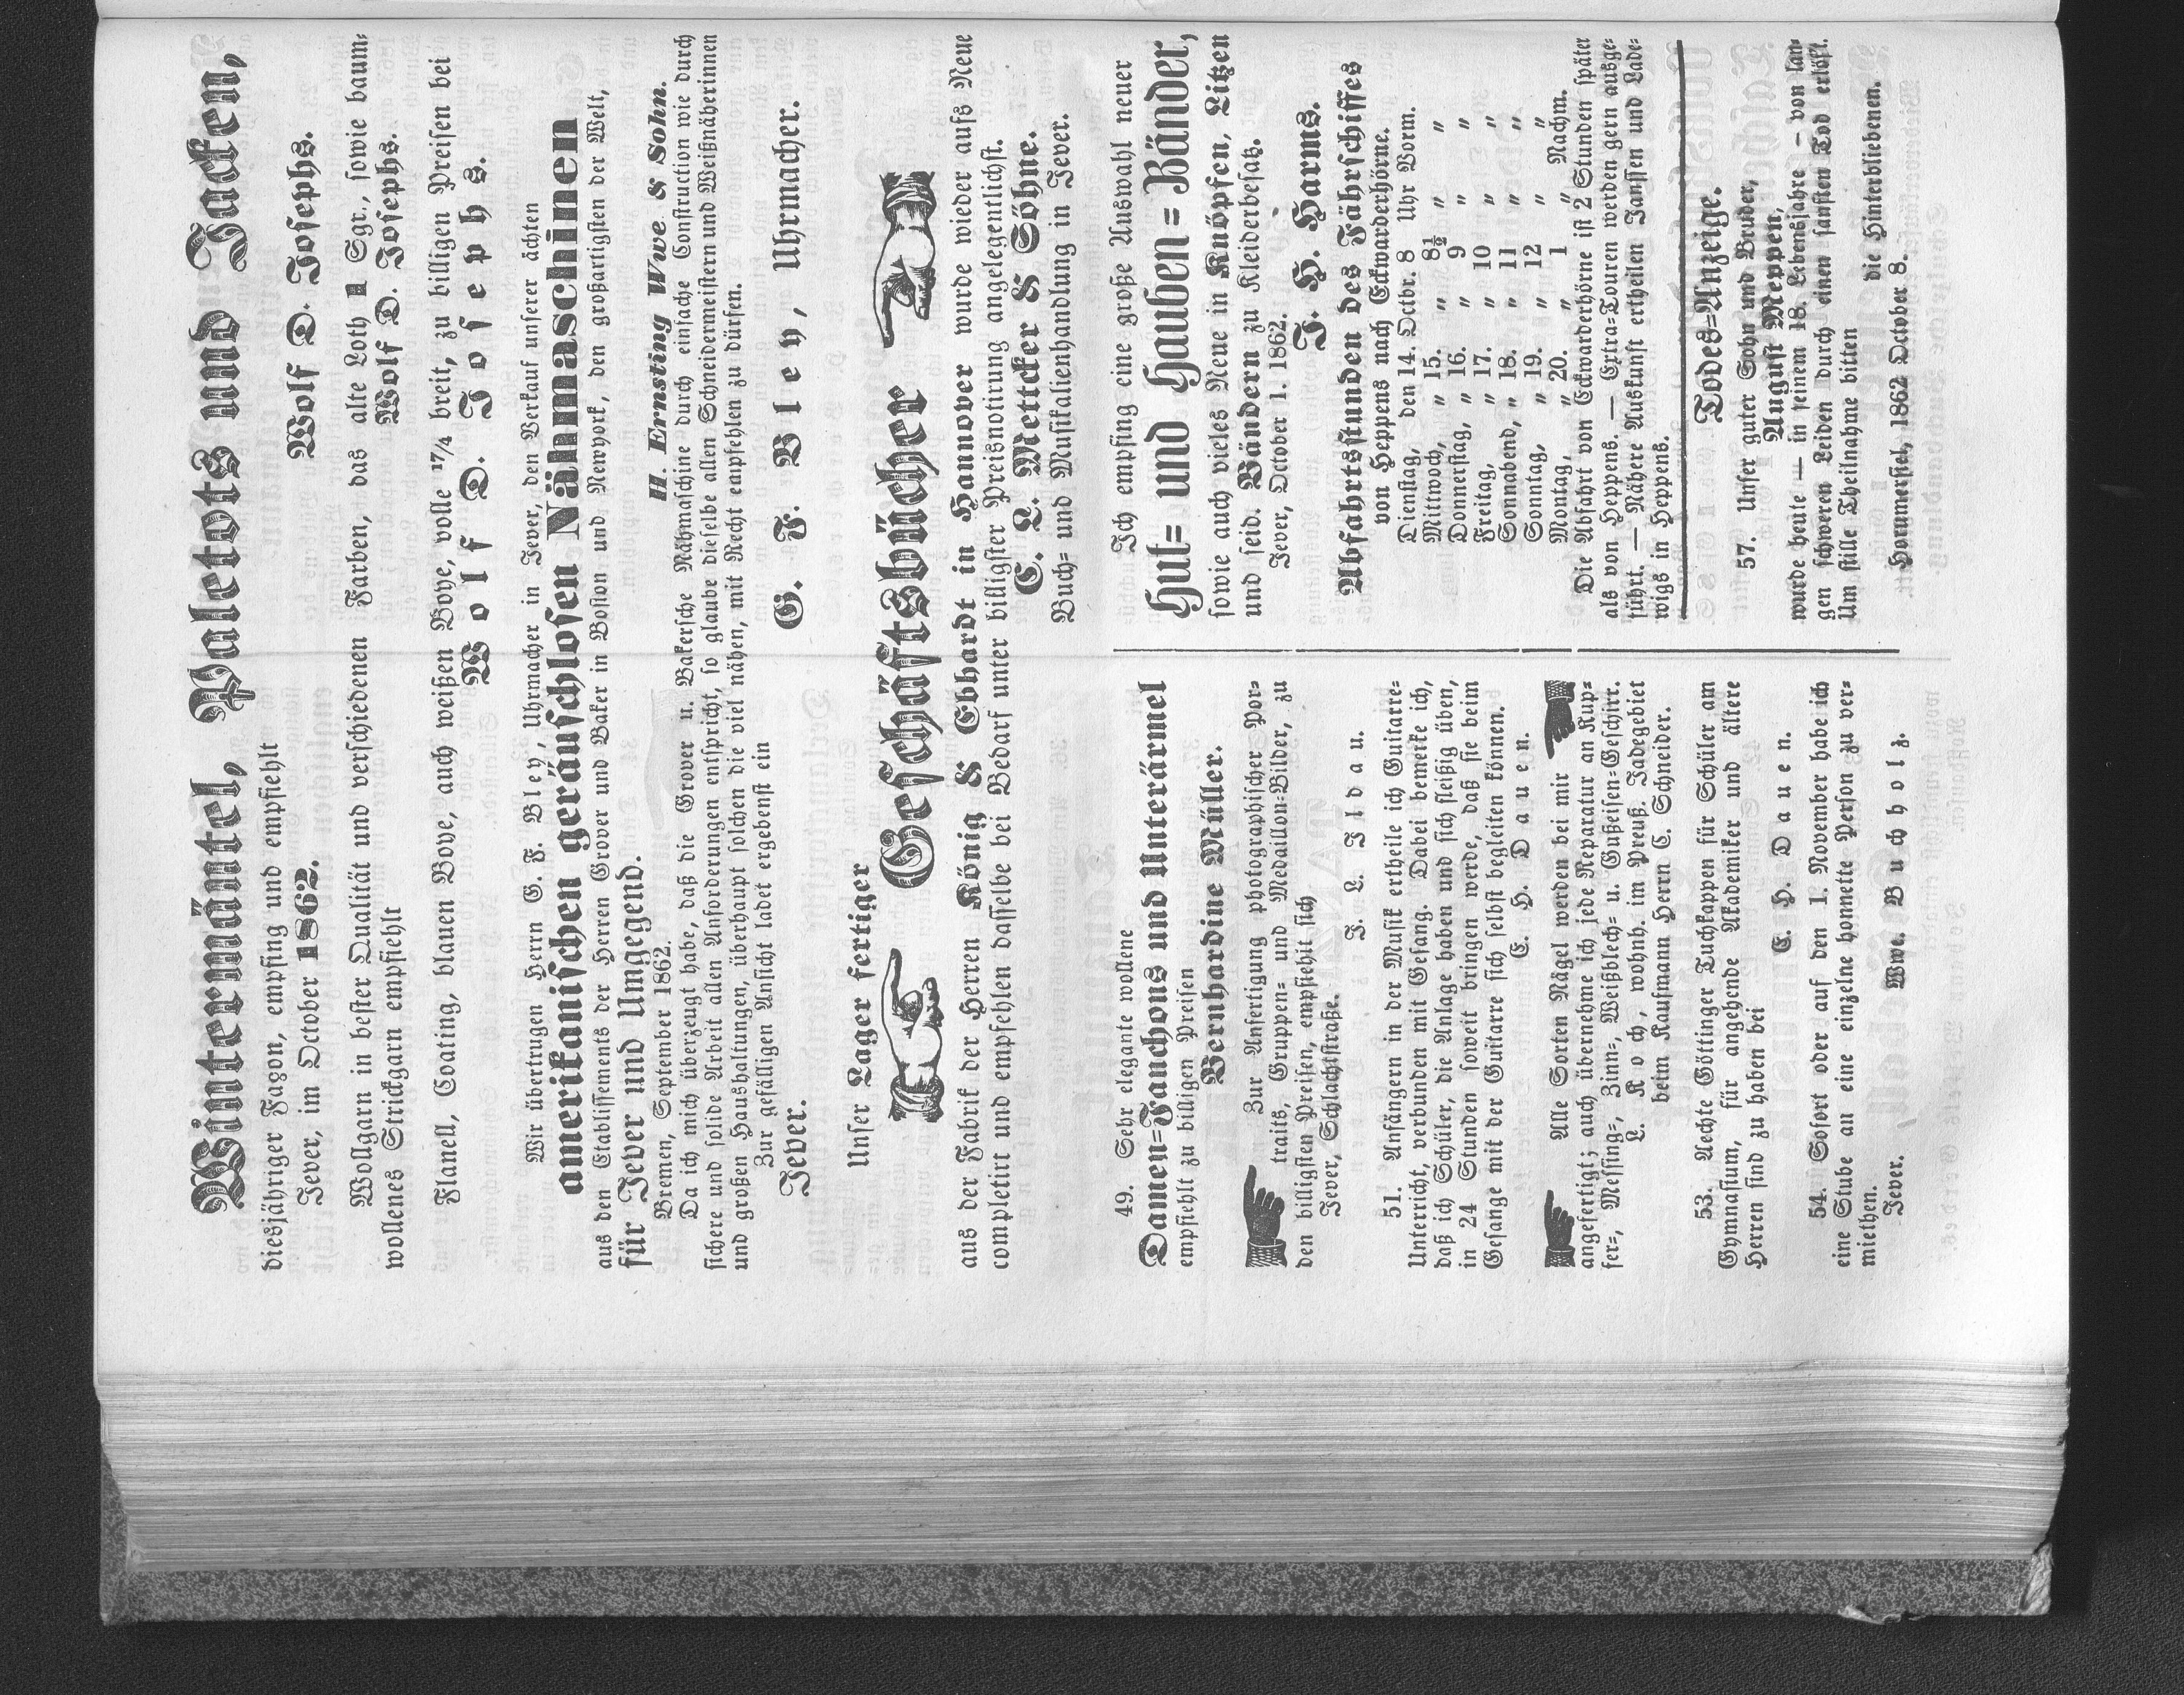 Wintermäntel, Paletots und Jacken,
diesjähriger Façon, empfing und empfiehlt
Jever, im October 1862. Wolf D. Josephs.
Wollgarn in bester Qualität und verschiedenen Farben, das alte Loth 1 Sgr., sowie baum-
wollenes Strickgarn empfiehlt Wolf D. Josephs.
Flanell, Coating, blauen Boye, auch weißen Boye, volle 17/4 breit, zu billigen Preisen bei
Wolf D. Josephs.
Wir übertrugen Herrn G. F. Bley, Uhrmacher in Jever, den Verkauf unserer ächten
amerikanischen geräuschlosen Nähmaschinen
aus den Etablissements der Herren Grover und Baker in Boston und Newyork, den großartigsten der Welt,
für Jever und Umgegend.
Bremen, September 1862. H. Ernsting Wwe & Sohn.
Da ich mich überzeugt habe, daß die Grover u. Bakersche Nähmaschine durch einfache Construction wie durch
sichere und solide Arbeit allen Anforderungen entspricht, so glaube dieselbe allen Schneidermeistern und Weißnäherinnen
und großen Haushaltungen, überhaupt solchen die viel nähen, mit Recht empfehlen zu dürfen.
Zur gefälligen Ansicht ladet ergebenst ein
Jever. G. F. Bley, Uhrmacher.
Unser Lager fertiger
Geschäftsbücher
aus der Fabrik der Herren König & Ebhardt in Hannover wurde wieder aufs Neue
completirt und empfehlen dasselbe bei Bedarf unter billigster Preisnotirung angelegentlichst.
C. L. Mettcker & Söhne.
Buch- und Musikalienhandlung in Jever.
49. Sehr elegante wollene
Damen-Fanchons und Unterärmel
empfiehlt zu billigen Preisen
Bernhardine Müller.
Zur Anfertigung photographischer Por-
traits, Gruppen- und Medaillon-Bilder, zu
den billigsten Preisen, empfiehlt sich
Jever, Schlachtstraße.
J. L. Ildau.
51. Anfängern in der Musik ertheile ich Guitarre-
Unterricht, verbunden mit Gesang. Dabei bemerke ich,
daß ich Schüler, die Anlage haben und sich fleißig üben,
in 24 Stunden soweit bringen werde, daß sie beim
Gesange mit der Guitarre sich selbst begleiten können.
E. H. Dauen.
Alle Sorten Nägel werden bei mir
angefertigt; auch übernehme ich jede Reparatur an Kup-
fer-, Messing-, Zinn-, Weißblech- u. Gußeisen-Geschirr.
L. Koch, wohnh. im Preuß. Jadegebiet
beim Kaufmann Herrn C. Schneider.
53. Aechte Göttinger Tuchkappen für Schüler am
Gymnasium, für angehende Akademiker und ältere
Herren sind zu haben bei
E. H. Dauen.
54. Sofort oder auf den 1. November habe ich
eine Stube an eine einzelne honnette Person zu ver-
miethen.
Jever. Wwe. Buchholz.
Ich empfing eine große Auswahl neuer
Hut- und Hauben-Bänder,
sowie auch vieles Neue in Knöpfen, Litzen
und seid. Bändern zu Kleiderbesatz.
Jever, October 1. 1862.
J. H. Harms.
Abfahrtsstunden des Fährschiffes
von Heppens nach Eckwarderhörne.
Dienstag, den 14. Octbr. 8 Uhr Vorm.
Mittwoch, „ 15. „ 8½ „ „
Donnerstag, „ 16. „ 9 „ „
Freitag, „ 17. „ 10 „ „
Sonnabend, „ 18. „ 11 „ „
Sonntag, „ 19. „ 12 „ „
Montag, „ 20. „ 1 „ Nachm.
Die Abfahrt von Eckwarderhörne ist 2 Stunden später
als von Heppens. — Extra-Touren werden gern ausge-
führt. — Nähere Auskunft ertheilen Janssen und Lade-
wigs in Heppens.
Todes-Anzeige.
57. Unser guter Sohn und Bruder,
August Meppen,
wurde heute — in seinem 18. Lebensjahre — von lan-
gen schweren Leiden durch einen sanften Tod erlöst.
Um stille Theilnahme bitten
die Hinterbliebenen.
Horumersiel, 1862 October 8.